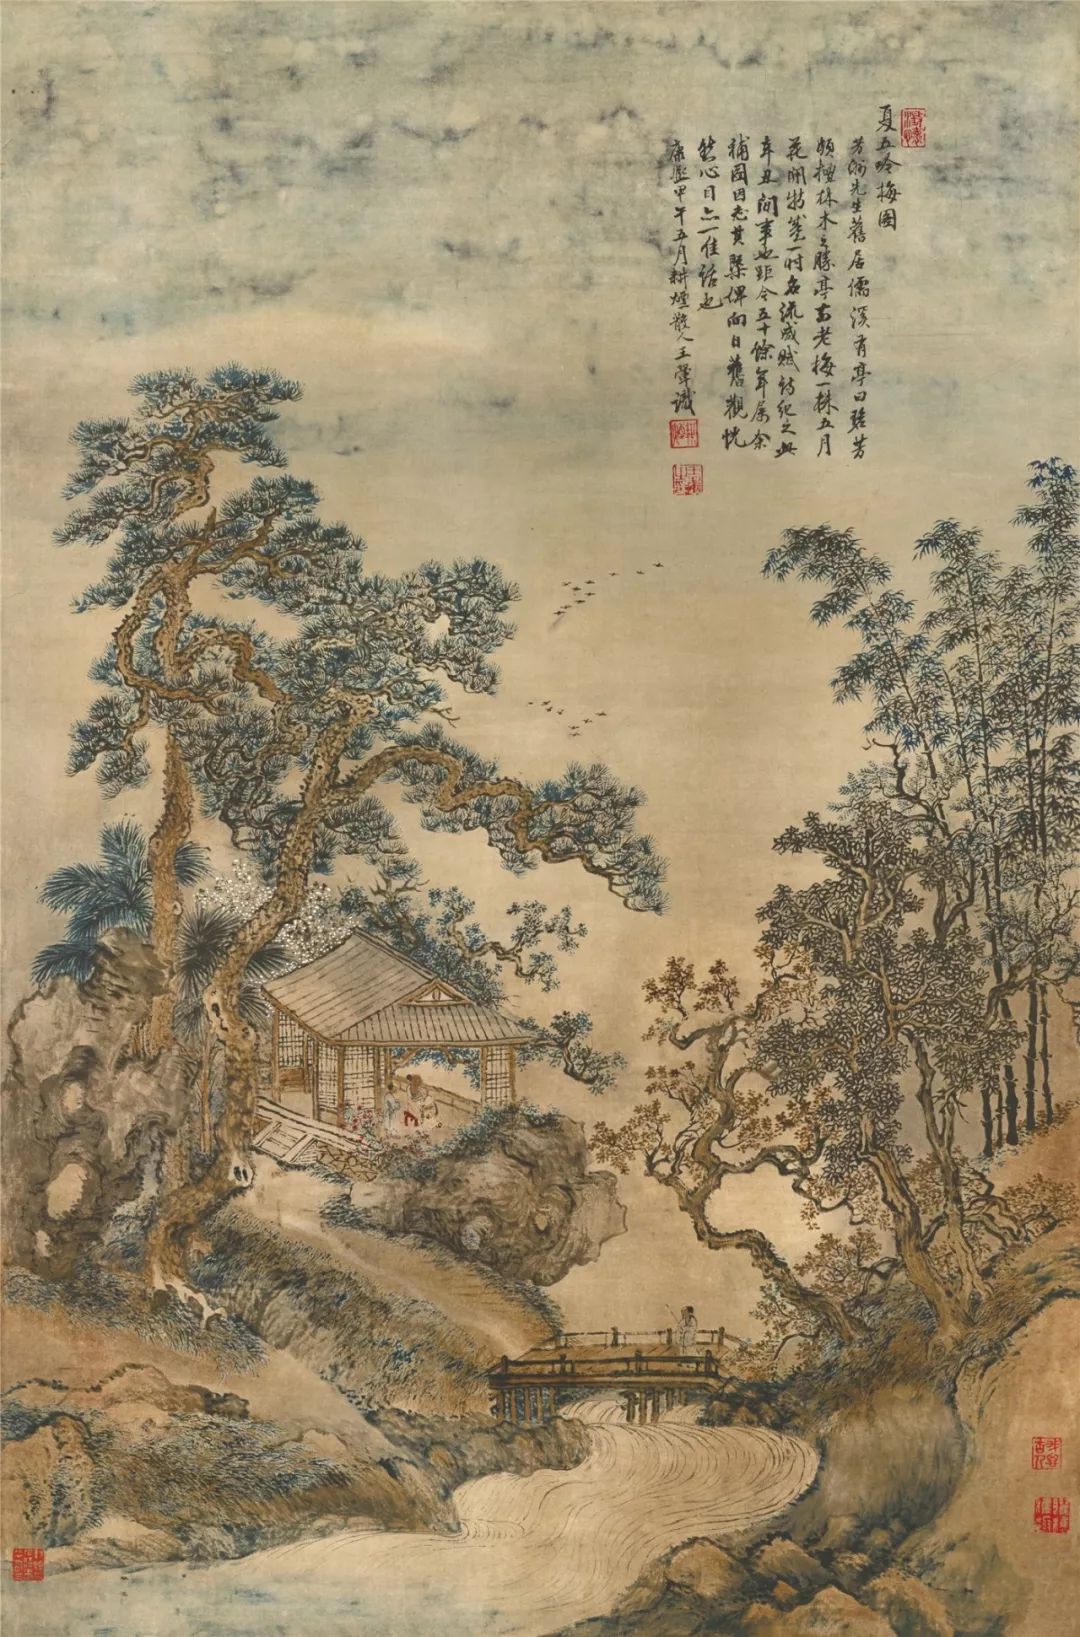 夏五吟梅图
芳洲先生舊居儒溪有亭曰碧芳
頗擅林木之勝亭前老梅一株五月
花開特盛一时名流咸赋诗纪之此
辛丑間事也距今五十餘年屬余
補圖因志其槩俾向日舊觀恍
然心目亦一佳话也
康熙甲午五月耕煙散人王翬識